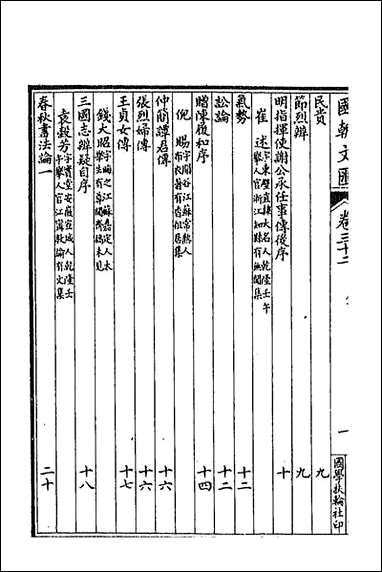 國朝文匯 卷三十二 一 國學扶輪社印
民貴 九
節烈辨 九
明指揮使謝公承任事傳後序 十
崔述 字東壁直隸大名人乾隆壬午舉人官浙江知縣有無聞集
氣勢 十二
訟論 十二
贈陳履和序 十四
倪賜 字閬谷江蘇常熟人布衣著有香祉居集
仲簡譚君傳 十六
張烈婦傳 十六
王貞女傳 十七
錢大昭 字晦之江蘇嘉定人太學生有尊聞齋稿未見
三國志辨疑自序 十八
袁穀芳 字實堂安徽宣城人乾隆壬午舉人官江寧教諭有文集
春秋書法論一 二十